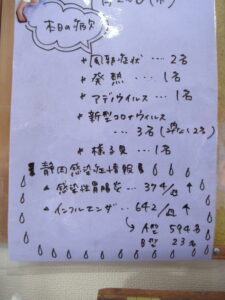 本日の病欠
* 風邪症状 … 2名
* 発熱 … 1名
* アデノウイルス … 1名
* 新型コロナウイルス
… 3名
* 様子見 … 1名
感染症情報
* 感染性胃腸炎 … 374/週 ↑
* インフルエンザ … 642/週 ↑
↳ A型 594名
B型 23名